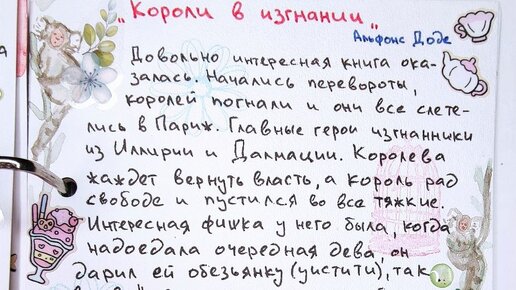 „Короли в изгнании"
Альфонс Доде
Довольно интересная книга ока-
залась. Начались перевороты,
королей погнали и они все слете-
лись в Париж. Главные герои изгнанники
из Иллирии и Далмации. Королева
жаждет вернуть власть, а король рад
свободе и пустился во все тяжкие.
Интересная фишка у него была, когда
надоедала очередная дева, он
дарил ей обезьянку (уистити), так-